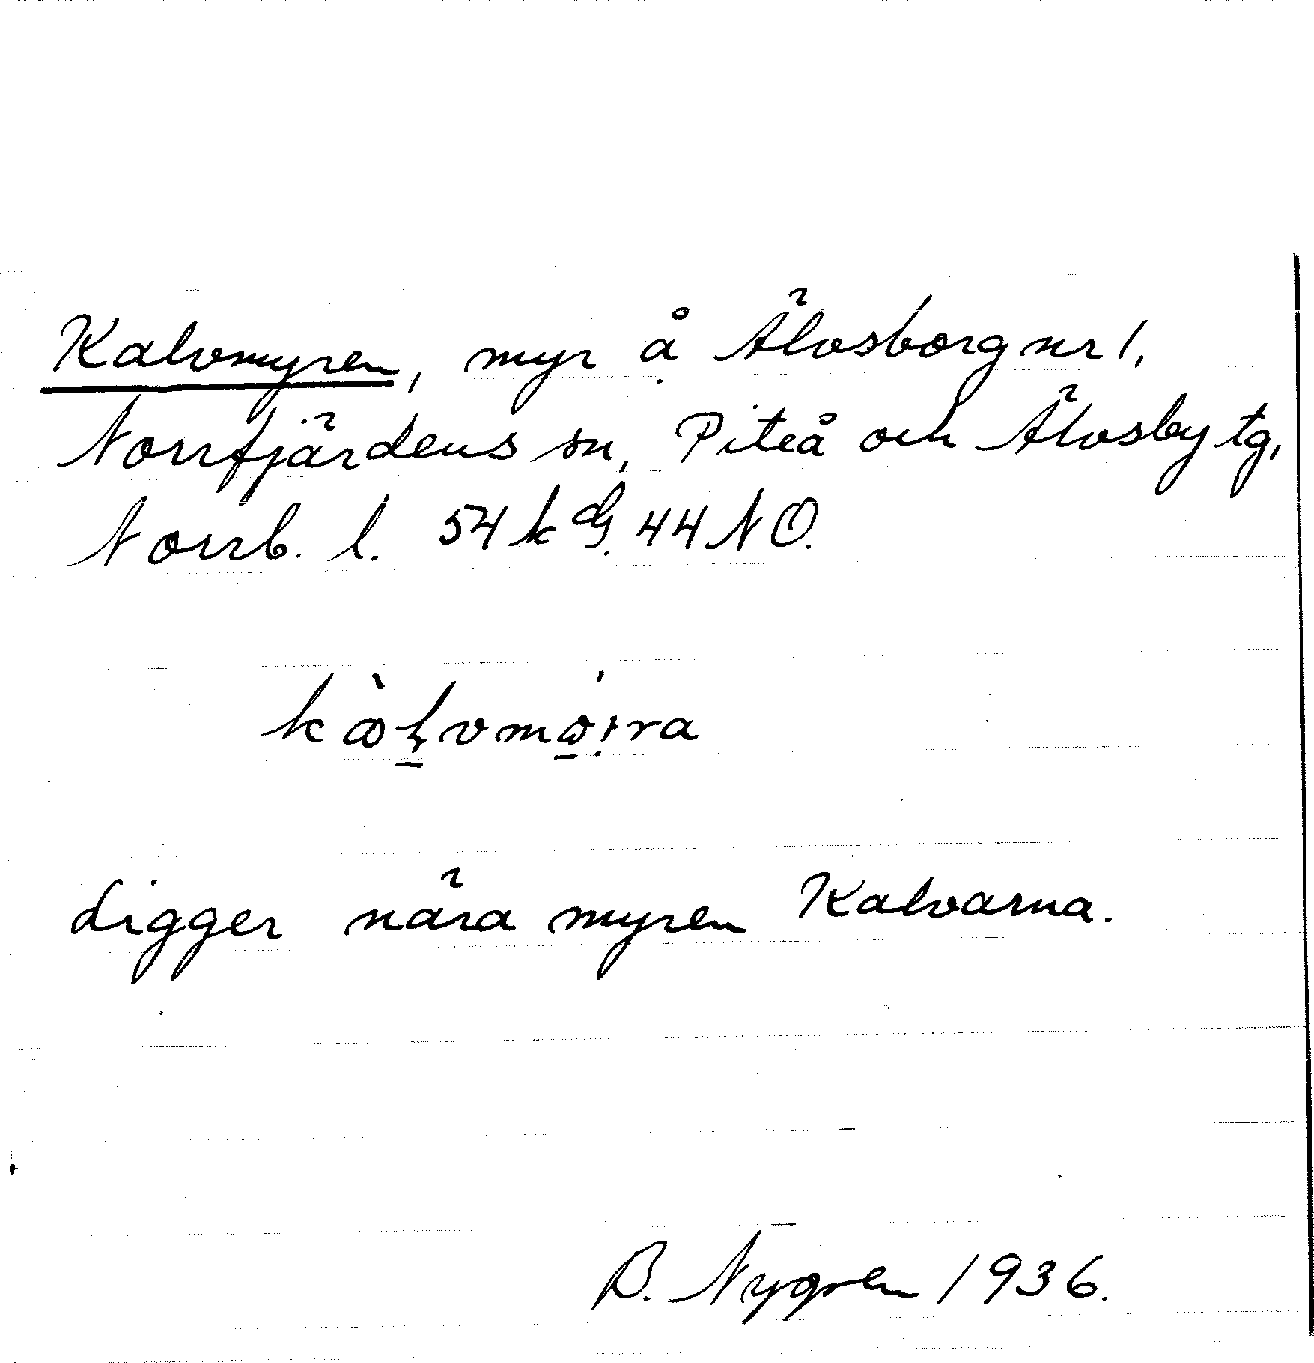 Kalvmyren, myr å Älvsborg nr 1,
Norrfjärdens sn, Piteå och Älvsby tg,
Norrb. l. 54 k G. 44 NO.
Ligger nära myren Kalvarna.
B. Nygren 1936.